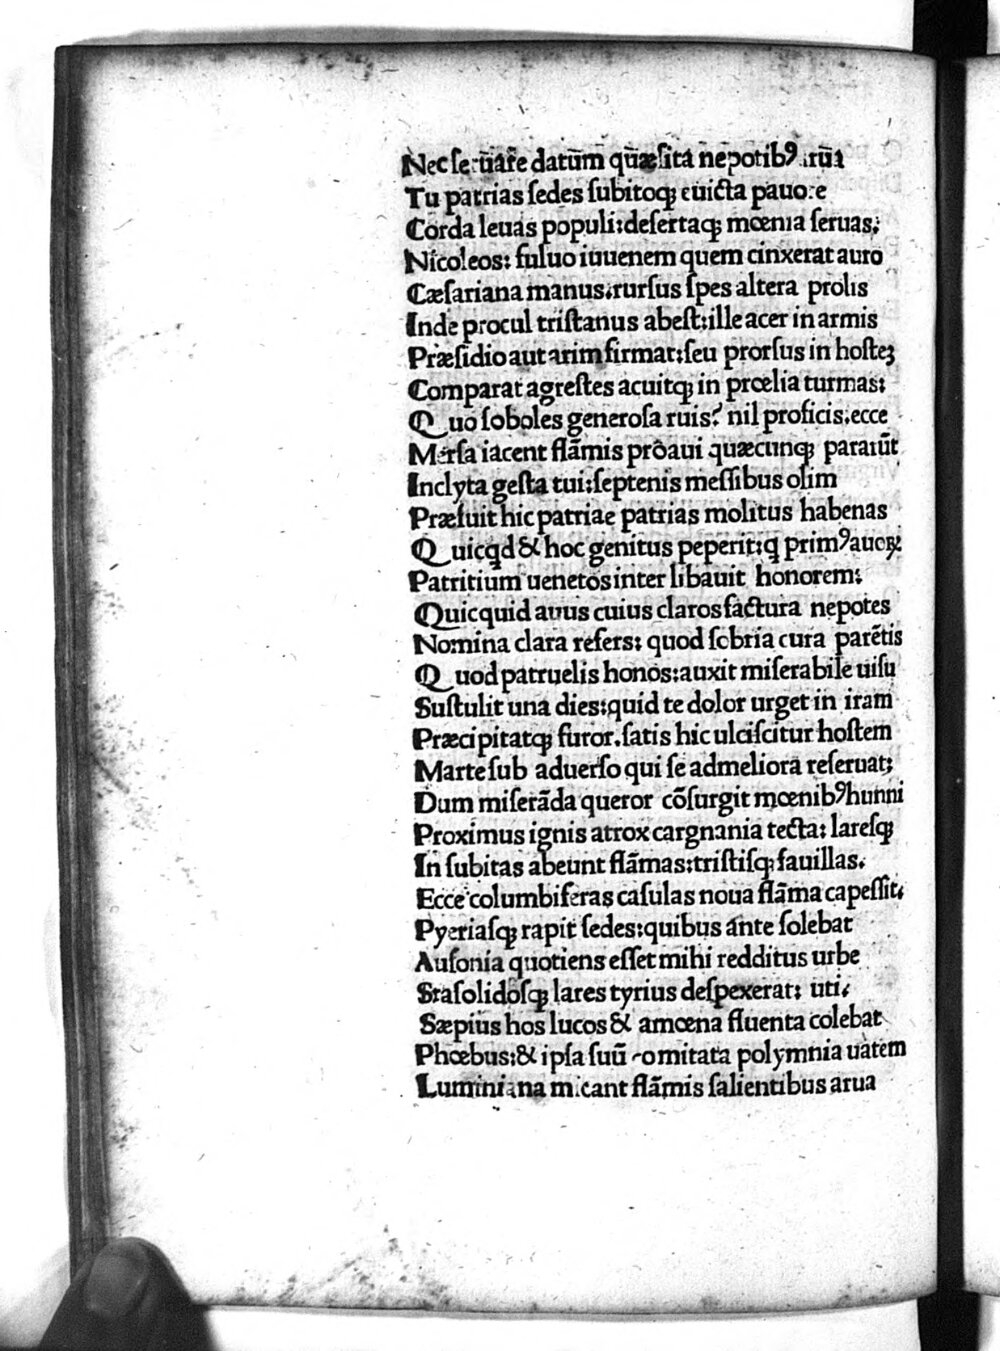 Nec ſeruare datum quæſita nepotibꝰ
Tu patrias ſedes ſubitoqꝫ euicta pauore
Corda leuas populi: deſertaqꝫ mœnia ſeruas;
Nicoleos: fuluo iuuenem quem cinxerat auro
Cæſariana manus. rurſus ſpes altera prolis
Inde procul triſtanus abeſt: ille acer in armis
Præſidio aut arim firmat: ſeu prorſus in hoſteꝫ
Comparat agreſtes acuitqꝫ in prœlia turmas:
Quo ſoboles generoſa ruis? nil proficis. ecce
Merſa iacent flāmis proaui quæcunqꝫ pararūt
Inclyta geſta tui: ſeptenis meſſibus olim
Præfuit hic patriae patrias molitus habenas
Quicqd & hoc genitus peperit: q primꝰ auoꝝ
Patritium uenetos inter libauit honorem:
Quicquid auus cuius claros factura nepotes
Nomina clara refers: quod ſobria cura parētis
Quod patruelis honos: auxit miſerabile uiſu
Suſtulit una dies: quid te dolor urget in iram
Præcipitatqꝫ furor. ſatis hic ulciſcitur hoſtem
Marte ſub aduerſo qui ſe ad meliora reſeruat;
Dum miſerāda queror cōſurgit mœnibꝰ hunni
Proximus ignis atrox cargnania tecta: lareſqꝫ
In ſubitas abeunt flāmas: triſtiſqꝫ fauillas.
Ecce columbiferas caſulas noua flāma capeſſit.
Pyeriaſqꝫ rapit ſedes: quibus ante ſolebat
Auſonia quotiens eſſet mihi redditus urbe
Straſolidoſqꝫ lares tyrius deſpexerat: uti.
Sæpius hos lucos & amœna fluenta colebat
Phœbus: & ipſa ſuū comitata polymnia uatem
Luminiana micant flāmis ſalientibus arua